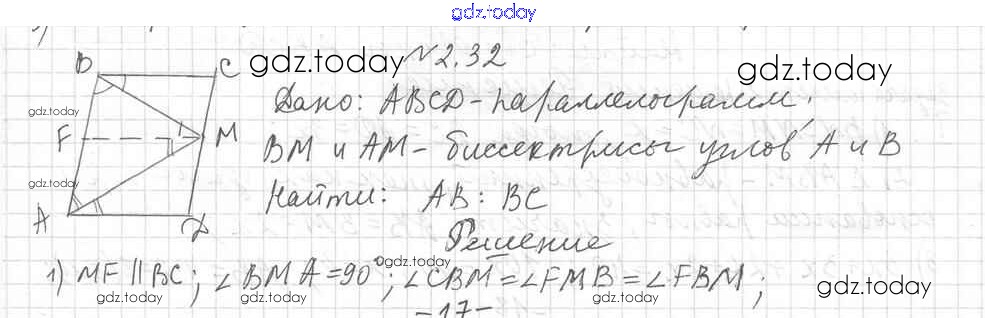 gdz.today
B C gdz.today №2.32 gdz.today
Дано: ABCD - параллелограмм.
gdz.today
F M BM и AM - биссектрисы углов A и B
gdz.today
Найти: AB : BC
A D
Решение
gdz.today
1) MF || BC; ∠BMA = 90°; ∠CBM = ∠FMB = ∠FBM;
gdz.today gdz.today gdz.today gdz.today
-17-